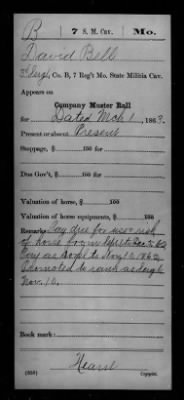 B 7 S. M. Cav. Mo.
David Bell
Serg't, Co. B, 7 Reg't Mo. State Militia Cav.
Appears on
Company Muster Roll
for Dated Mch 1, 1863.
Present or absent Present
Stoppage, $ 100 for
Due Gov't, $ 100 for
Valuation of horse, $ 100
Valuation of horse equipments, $ 100
Remarks: Pay due for use & risk
of horse from Sept to Dec 5, 62
Pay as to Nov 10. 1862
Promoted to rank as Serg't
Nov. 10.
Book mark:
Hearst
(858) Copyist.